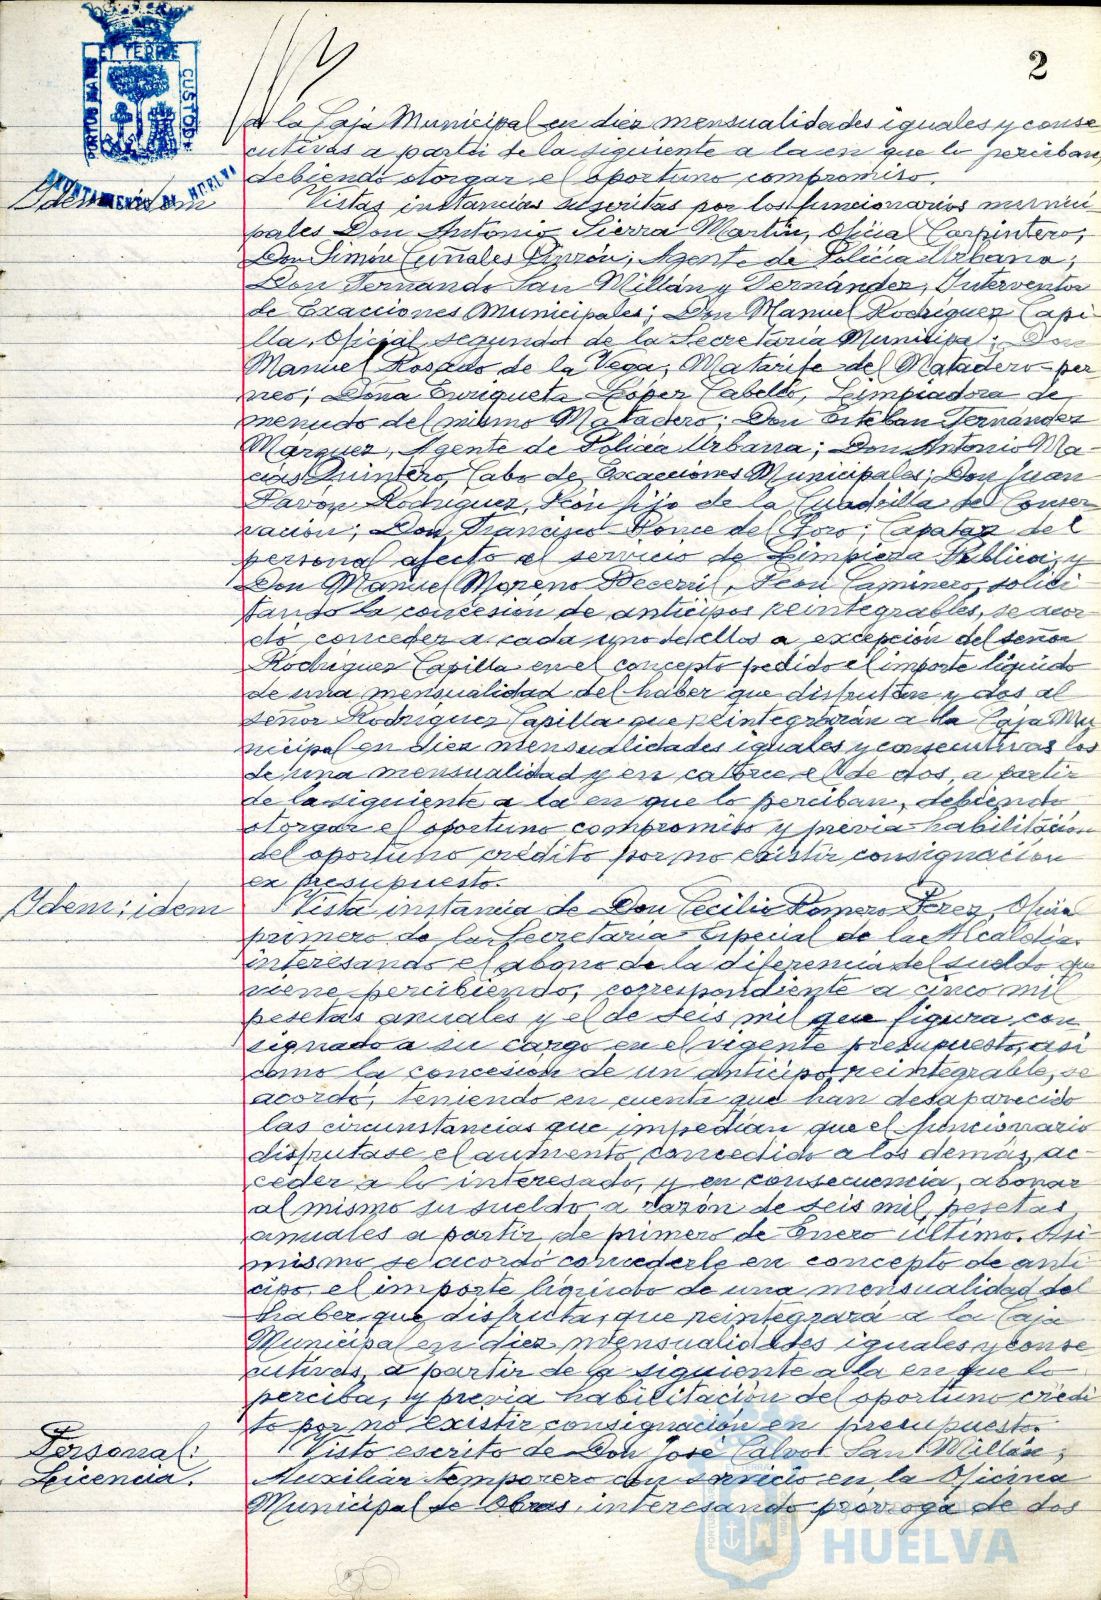 2
ET TERRÆ
PORTUS MARIS
CUSTODIA
AYUNTAMIENTO DE HUELVA
a la Caja Municipal en diez mensualidades iguales y conse
cutivas a partir de la siguiente a la en que lo perciban,
debiendo otorgar el oportuno compromiso.
Idem: idem
Vistas instancias suscritas por los funcionarios munici-
pales Don Antonio Sierra Martín, Oficial Carpintero;
Don Simón Cuñales Pinzón, Agente de Policía Urbana;
Don Fernando San Millán y Fernández, Interventor
de Exacciones Municipales; Don Manuel Rodríguez Capi-
lla, Oficial segundo de la Secretaría Municipal; Don
Manuel Rosado de la Vega, Matarife del Matadero per
neo; Doña Enriqueta López Cabello, Limpiadora de
menudo del mismo Matadero; Don Esteban Fernández
Márquez, Agente de Policía Urbana; Don Antonio Ma-
cías Quintero, Cabo de Exacciones Municipales; Don Juan
Pavón Rodríguez, Peón fijo de la Cuadrilla de Conser-
vación; Don Francisco Ponce de Toro, Capataz del
personal afecto al servicio de Limpieza Pública, y
Don Manuel Moreno Becerril, Peón Caminero, solici-
tando la concesión de anticipos reintegrables, se acor
dó conceder a cada uno de ellos a excepción del señor
Rodríguez Capilla en el concepto pedido el importe líquido
de una mensualidad del haber que disfrutan y dos al
señor Rodríguez Capilla que reintegrarán a la Caja Mu
nicipal en diez mensualidades iguales y consecutivas los
de una mensualidad y en catorce el de dos, a partir
de la siguiente a la en que lo perciban, debiendo
otorgar el oportuno compromiso y previa habilitación
del oportuno crédito por no existir consignación
en presupuesto.
Idem: idem
Vista instancia de Don Cecilio Romero Pérez, Oficial
primero de la Secretaría Especial de la Alcaldía,
interesando el abono de la diferencia del sueldo que
viene percibiendo, correspondiente a cinco mil
pesetas anuales y el de seis mil que figura con
signado a su cargo en el vigente presupuesto, así
como la concesión de un anticipo reintegrable, se
acordó, teniendo en cuenta que han desaparecido
las circunstancias que impedían que el funcionario
disfrutase el aumento concedido a los demás, ac-
ceder a lo interesado, y en consecuencia, abonar
al mismo su sueldo a razón de seis mil pesetas
anuales a partir de primero de Enero último. Asi-
mismo se acordó concederle en concepto de anti
cipo el importe líquido de una mensualidad del
haber que disfruta, que reintegrará a la Caja
Municipal en diez mensualidades iguales y conse
cutivas, a partir de la siguiente a la en que lo
perciba, y previa habilitación del oportuno crédi
to por no existir consignación en presupuesto.
Personal:
Licencia.
Visto escrito de Don José Calvo San Millán,
Auxiliar temporero con servicio en la Oficina
Municipal de Obras, interesando prórroga de dos
HUELVA